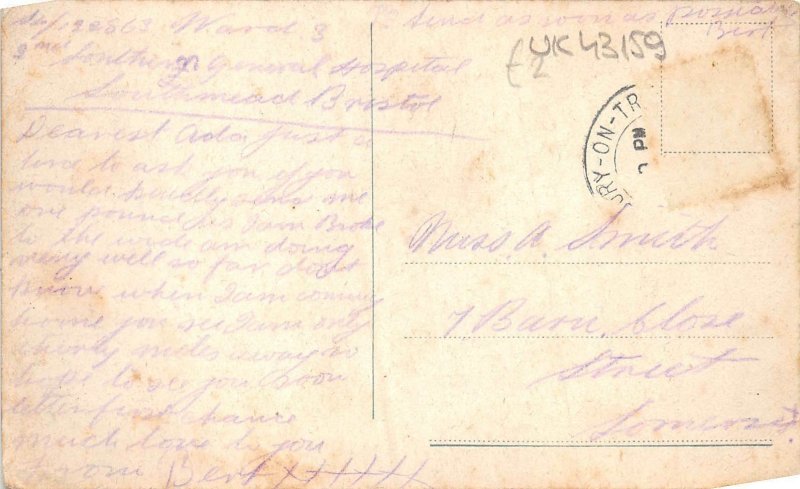 Send as soon as Possible
Bert
20863 Ward 3
2nd Southern General Hospital
Southmead Bristol
Dearest Ada Just a
line to ask you if you
would kindly send me
one pound as I am Broke
to the wide am doing
very well so far dont
know when I am coming
home you see I am only
thirty miles away so
hope to see you soon
letter first chance
much love to you
from Bert xxxxxx
UK 43159
£2
URY-ON-TR
PM
Miss. A. Smith
7 Barn Close
Street
Somerset